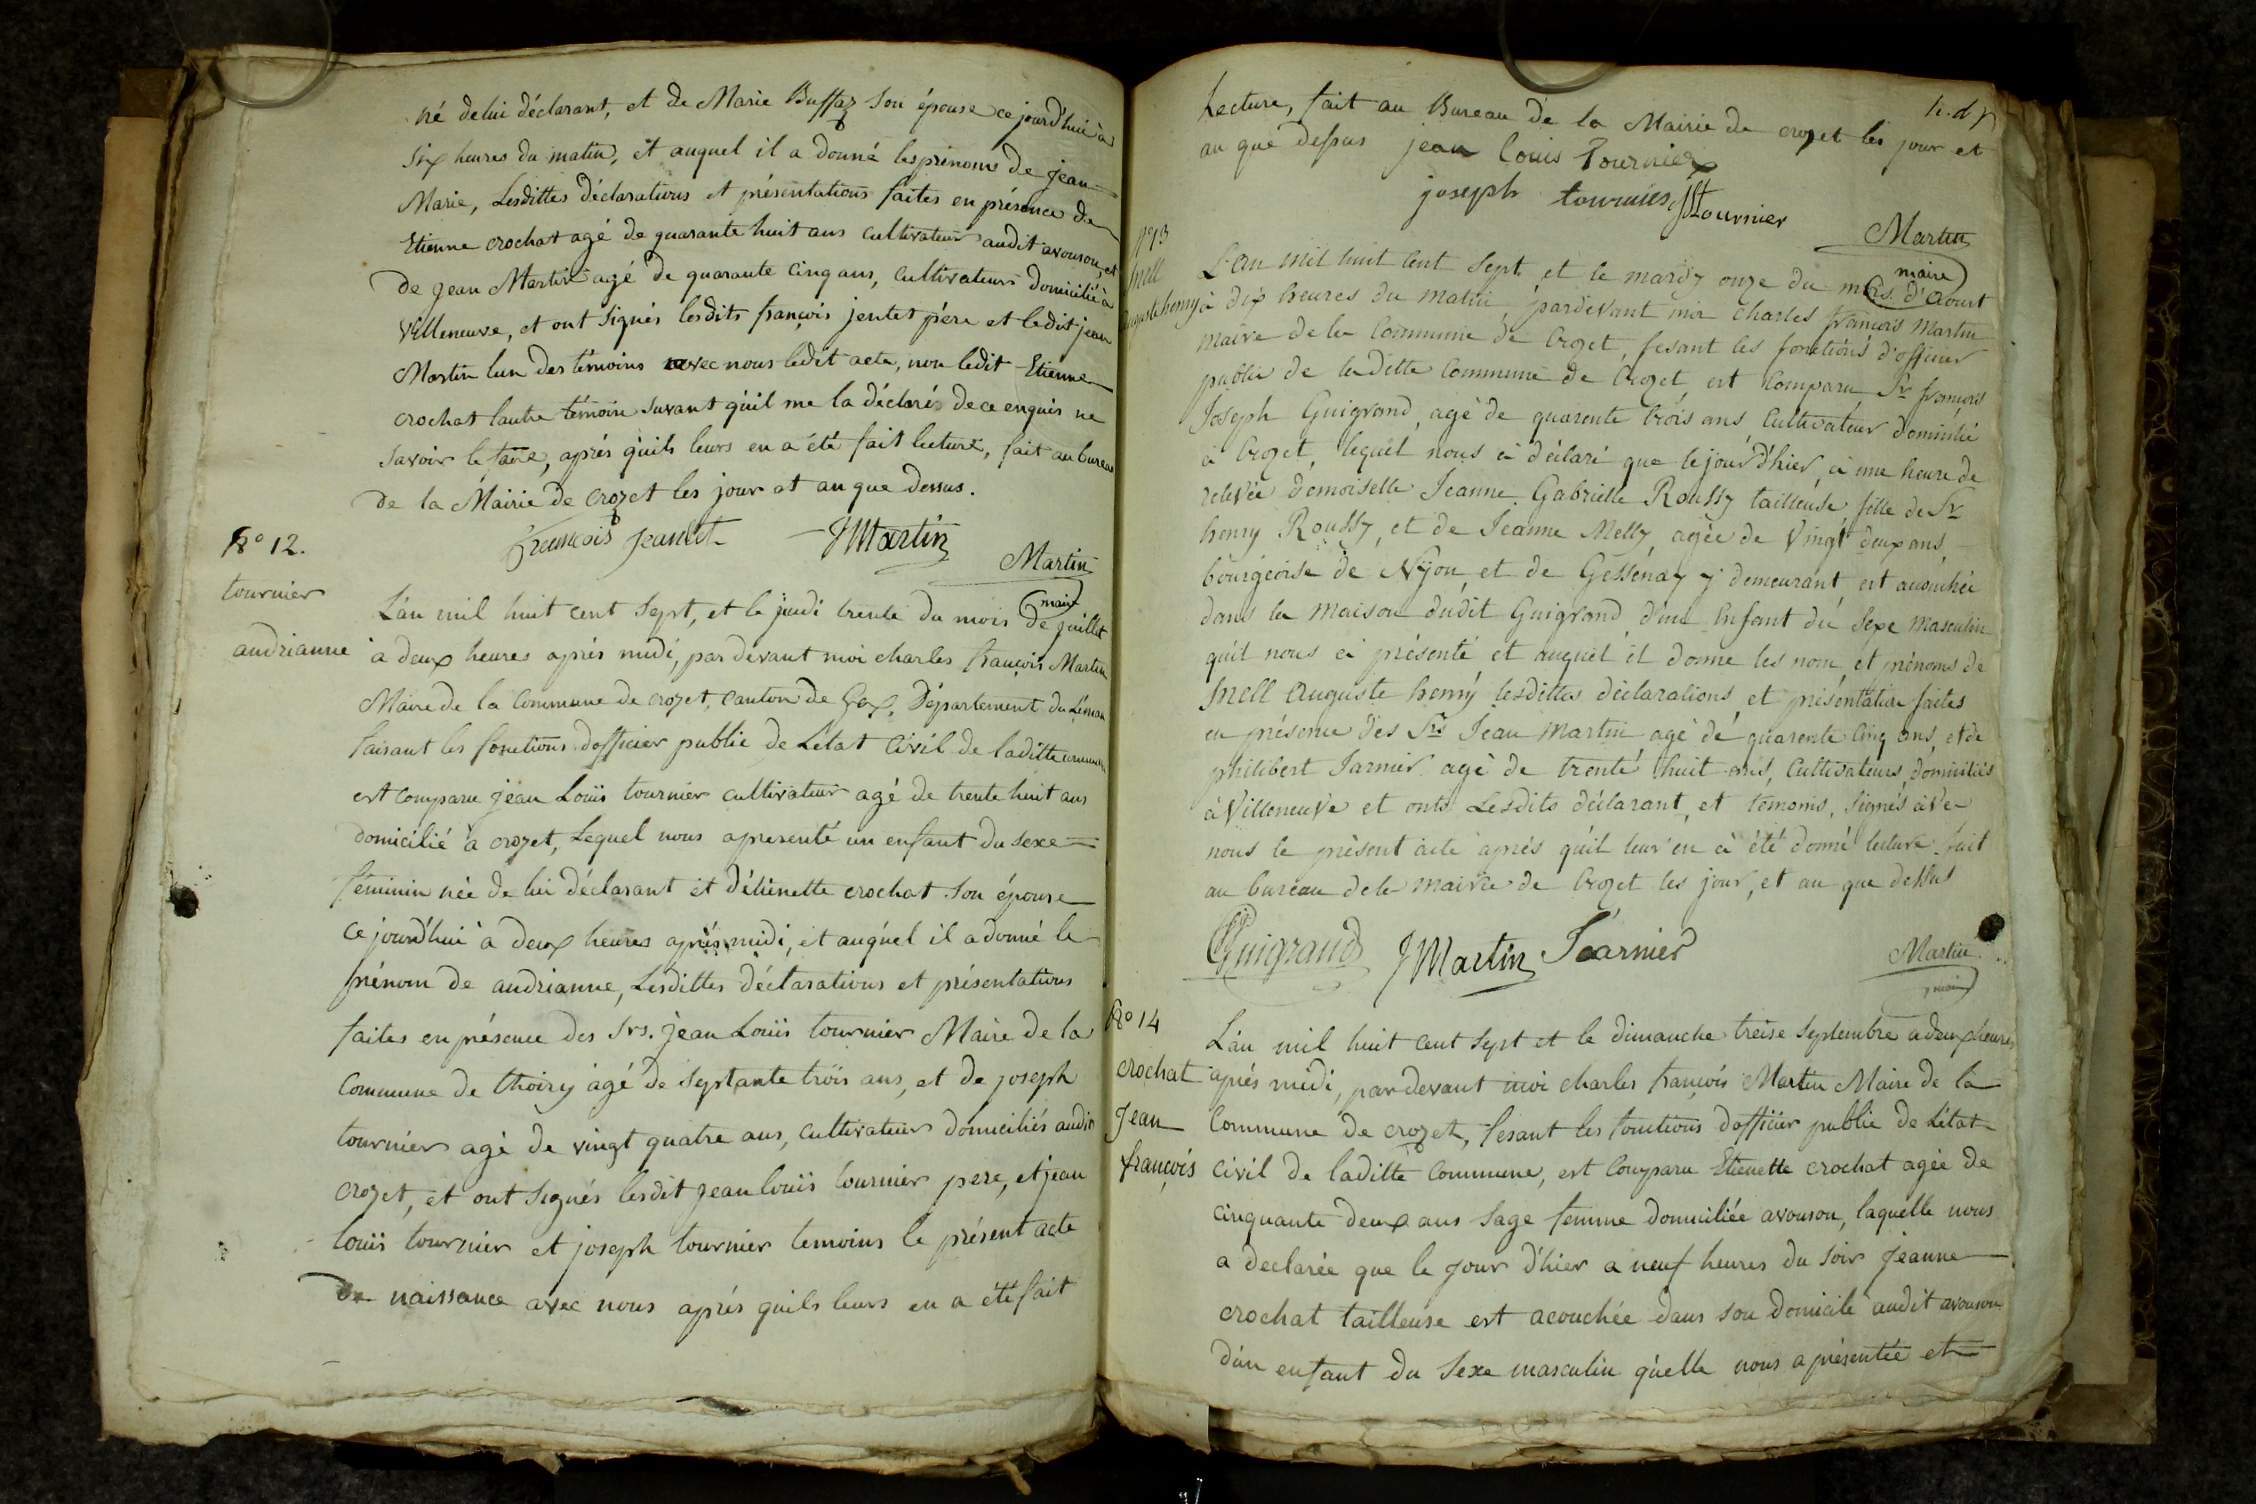 né de lui déclarant, et de Marie Buffaz son épouse ce jourd'hui à
six heures du matin, et auquel il a donné les prénoms de jean
Marie, Lesdittes déclarations et présentations faites en présence de
Etienne crochat agé de quarante huit ans cultivateur audit avouson, et
de jean Martin agé de quarante cinq ans, cultivateurs domicilié à
Villeneuve, et ont signés lesdits françois jentet père et ledit jean
Martin l'un des témoins avec nous ledit acte, non ledit Etienne
crochat lautre témoin suvant quil me la déclarés de ce enquis ne
savoir le faire, aprés quils leurs en a été fait lecture, fait au bureau
de la Mairie de crozet les jour et an que dessus.
françois jeantet JMartin
Martin
maire
No 12.
tournier
andrianne
L'an mil huit cent sept, et le jeudi trente du mois de juillet
à deux heures aprés midi, par devant moi charles françois Martin
Maire de la Commune de crozet, canton de Gex, Département du Léman
faisant les fonctions dofficier public de L'état Civil de laditte commune
est comparu jean Louis tournier cultivateur agé de trente huit ans
domicilié à crozet, Lequel nous a presenté un enfant du sexe
féminin née de lui déclarant et d'étiènette crochat son épouse
Ce jourd'hui à deux heures aprés midi, et auquel il a donné le
prénom de andrianne, Lesdittes déclarations et présentations
faites en présence des Srs. jean Louis tournier Maire de la
Commune de thoiry agé de septante trois ans, et de joseph
tournier agé de vingt quatre ans, cultivateur domiciliés audit
crozet, et ont signés lesdit jean louis tournier pere, et jean
louis tournier et joseph tournier temoins le présent acte
de naissance avec nous aprés quils leurs en a été fait
Lecture, fait au Bureau de la Mairie de crozet les jour et
an que dessus jean louis Tournier
joseph tournier JLtournier
Martin
maire
No 13
Mell
auguste henry
L'an mil huit cent sept et le mardy onze du mois d'Aoust
à dix heures du matin, pardevant moi charles françois Martin
maire de la Commune de Crozet, fesant les fonctions d'officier
public de laditte commune de Crozet, est comparu Sr françois
Joseph Guigrand, agé de quarente trois ans Cultivateur domicilié
à Crozet, lequel nous à déclaré que le jour d'hier à une heure de
relevée demoiselle Jeanne Gabrielle Roussy tailleuse fille de Sr
henry Roussy, et de Jeanne Melly, agée de vingt deux ans,
bourgeoise de Nyon, et de Gessenay y demeurant, est accouchée
dans la maison dudit Guigrand d'une Enfant du sexe masculin
quil nous à présenté et auquel il donne les nom et prénoms de
Mell Auguste henry lesdittes déclarations et présentation faites
en présence des Srs Jean Martin agé de quarente Cinq ans, et de
philibert Jarnier agé de trente huit ans, Cultivateurs, domiciliés
à Villeneuve et onts Lesdits déclarant, et temoins, signés avec
nous le présent acte après quil leur en à été donné lecture fait
au bureau de la mairie de Crozet les jour, et an que dessus
Guigrand JMartin Jarnier
Martin
maire
No 14
crochat
jean
françois
L'an mil huit cent sept et le dimanche treise septembre a deux heures
aprés midi, par devant moi charles françois Martin Maire de la
Commune de crozet, fesant les fonctions dofficier public de L'état
civil de laditte commune, est comparu Etienette crochat agée de
cinquante deux ans sage femme domiciliée avouson, laquelle nous
a declarée que le jour d'hier a neuf heures du soir jeanne
crochat tailleuse est acouchée dans son domicile audit avouson
d'un enfant du sexe masculin q'uelle nous a présentée et